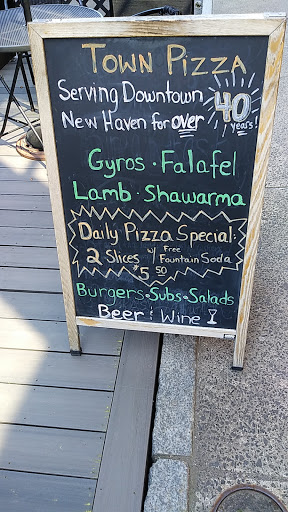 Town Pizza
Serving Downtown
New Haven for over 40 years!
Gyros · Falafel
Lamb · Shawarma
Daily Pizza Special:
2 Slices w/ Free Fountain Soda
$5 50
Burgers · Subs · Salads
Beer & Wine